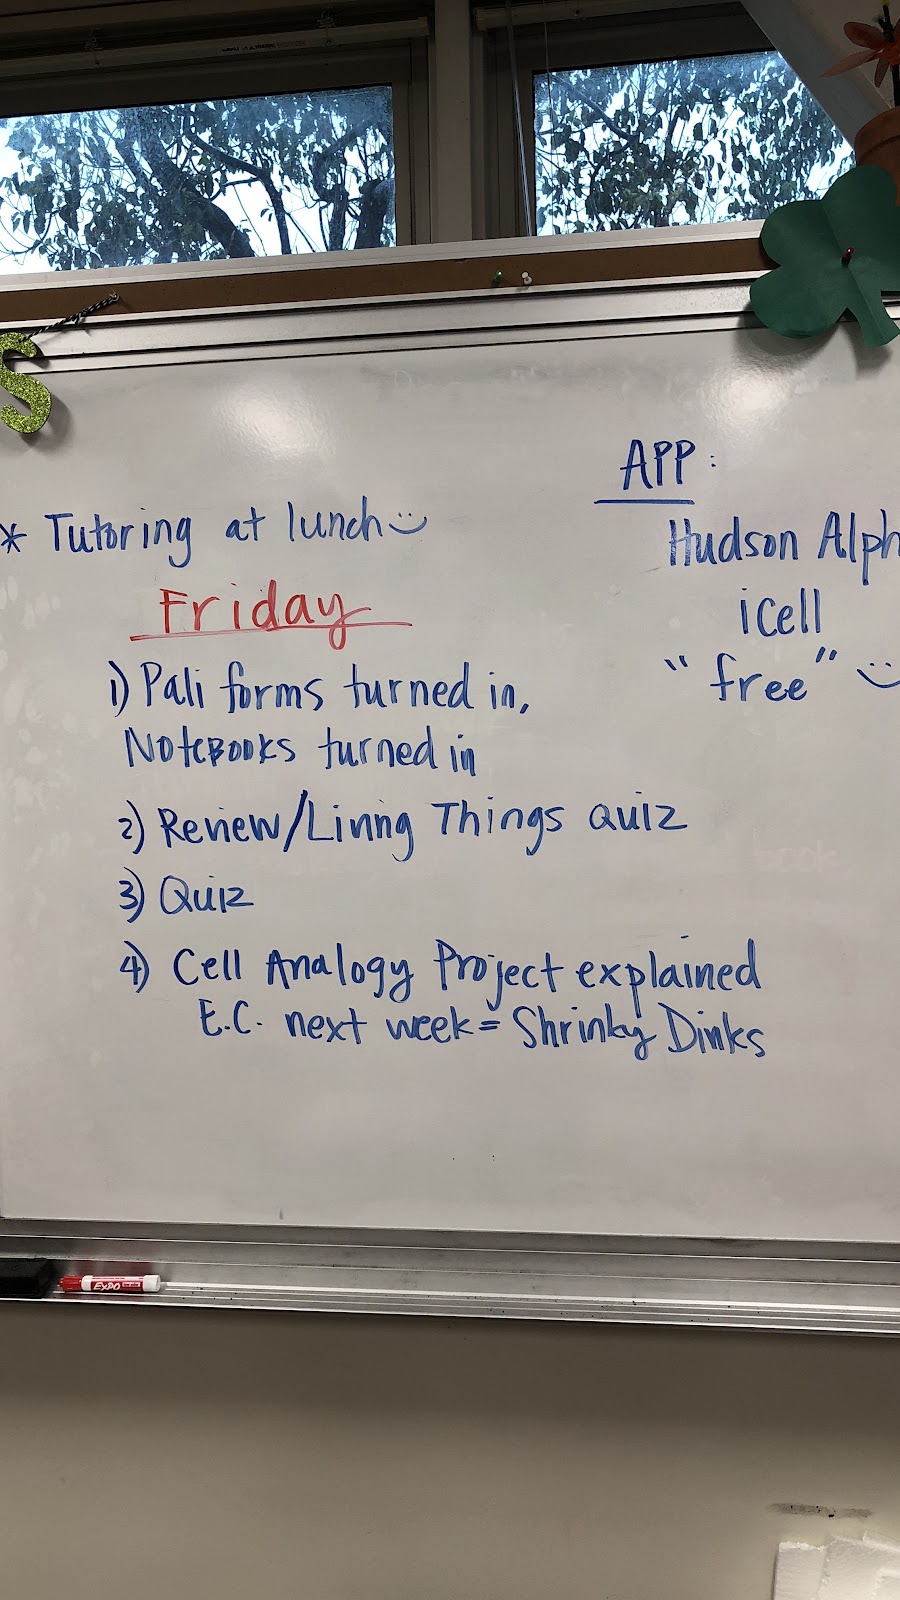 * Tutoring at lunch
Friday
1) Pali forms turned in,
Notebooks turned in
2) Review/Living Things quiz
3) Quiz
4) Cell Analogy Project explained
E.C. next week = Shrinky Dinks
APP:
Hudson Alph
iCell
"free"
S
EXPO